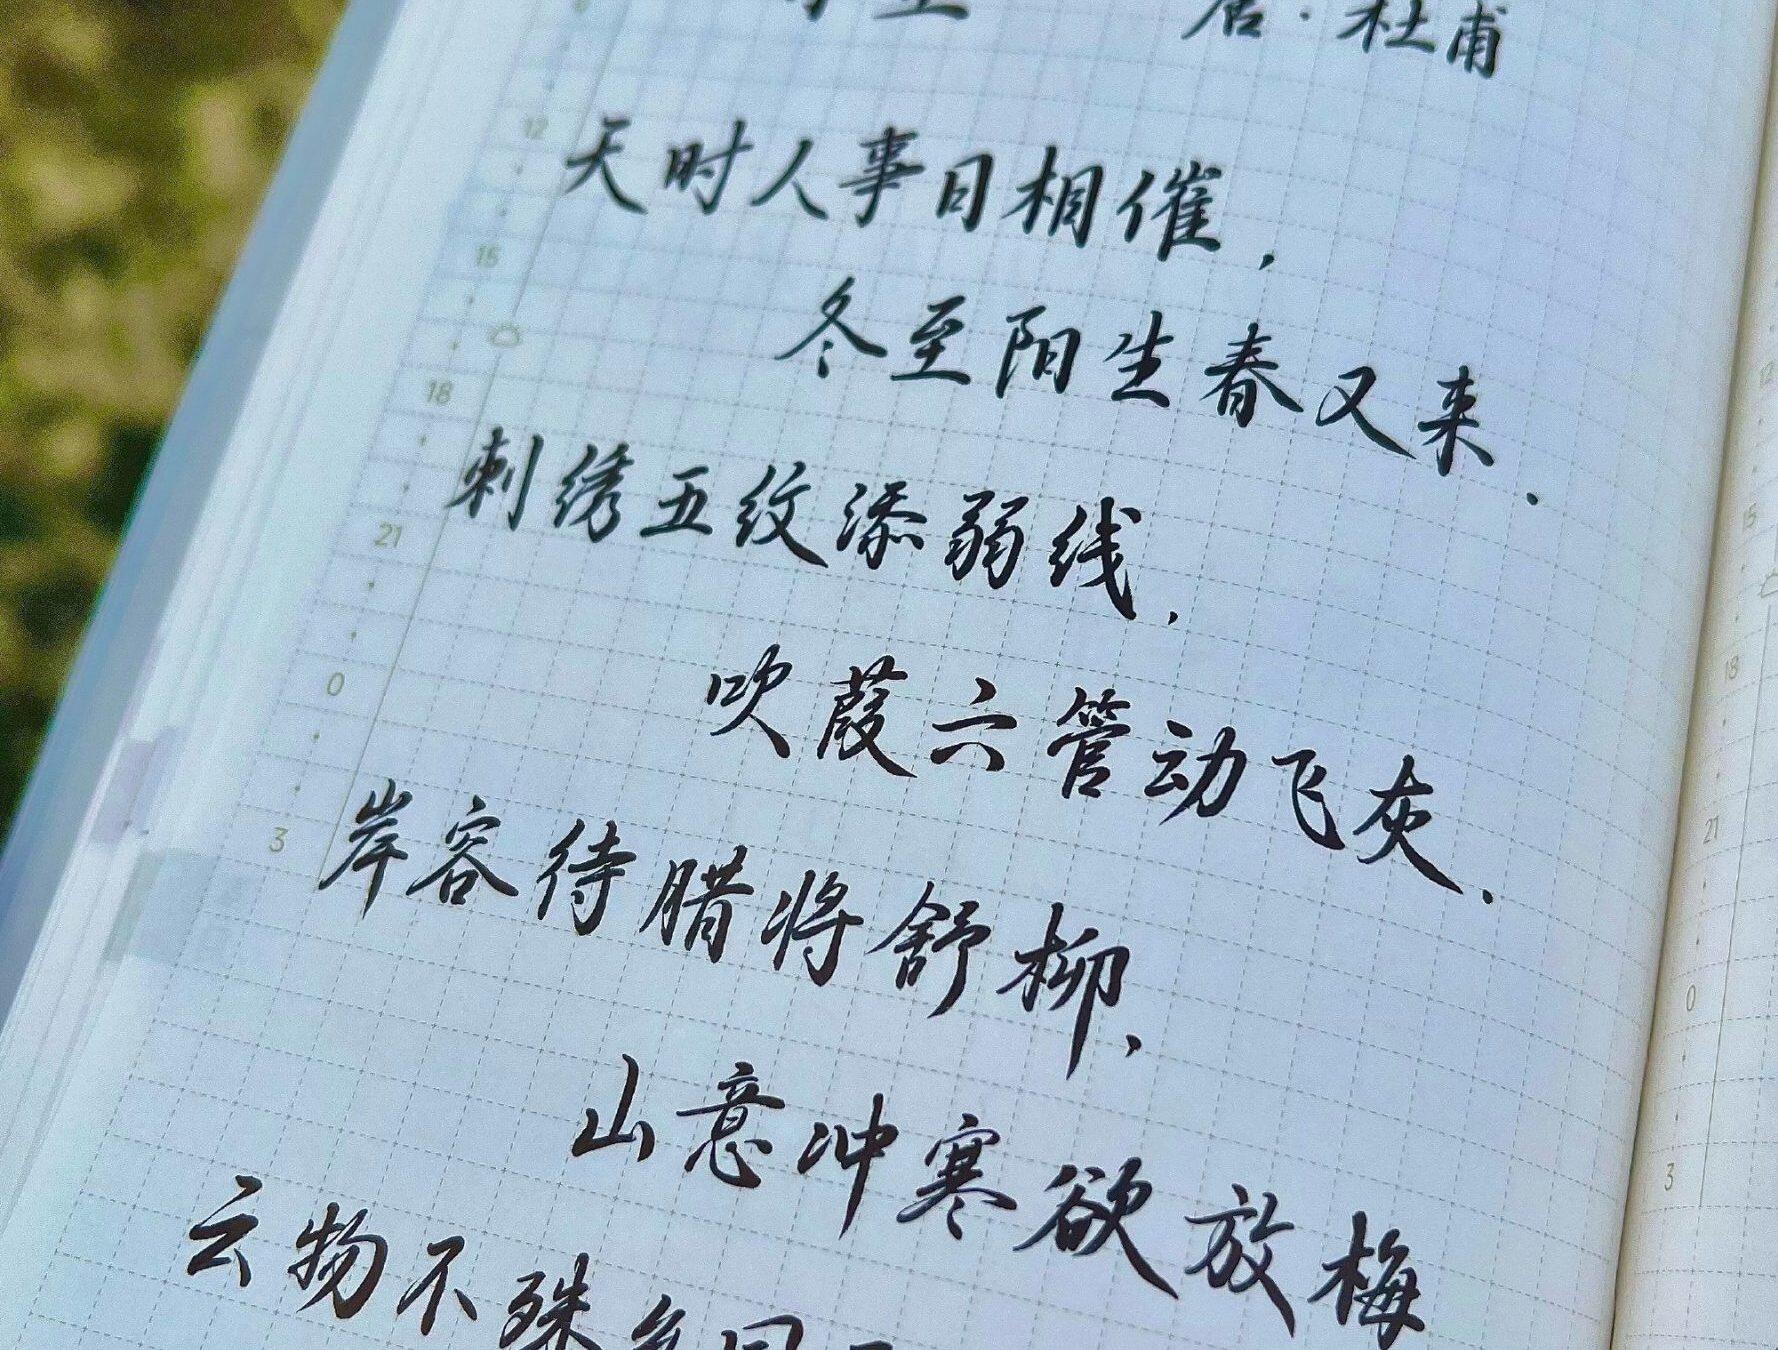 唐·杜甫
天时人事日相催，
冬至阳生春又来．
刺绣五纹添弱线，
吹葭六管动飞灰．
岸容待腊将舒柳，
山意冲寒欲放梅
云物不殊
12
15
18
21
0
3
12
15
18
21
0
3